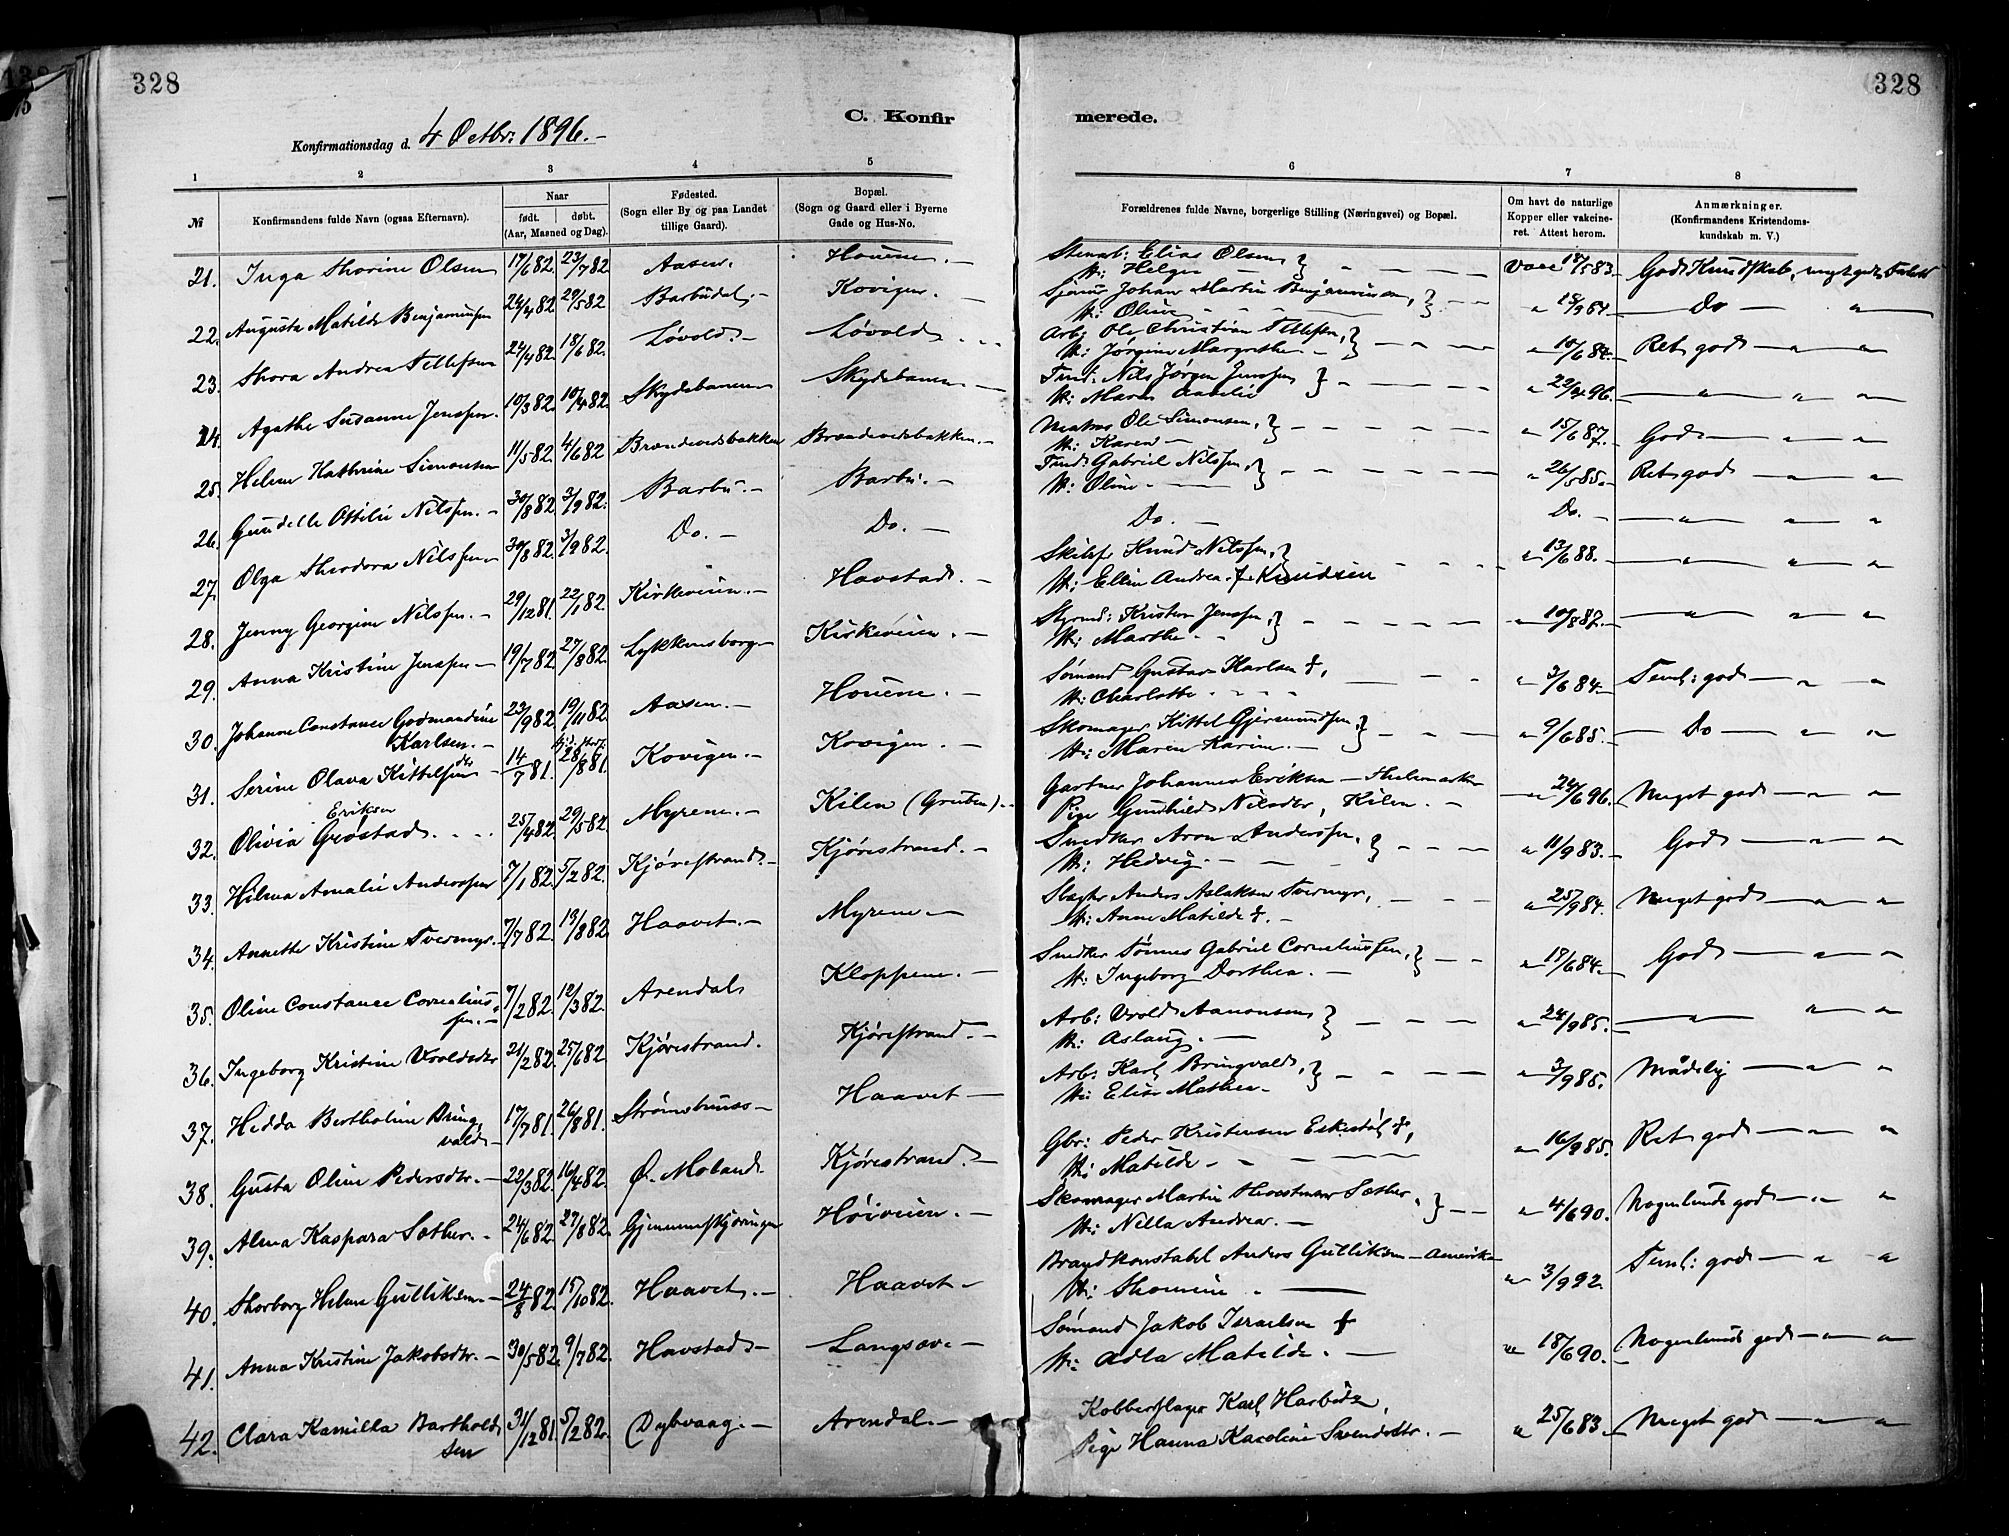 328
C. Konfir
Konfirmationsdag d. 4 Octbr. 1896.
1 2 3 4 5
№ Konfirmandens fulde Navn (ogsaa Efternavn). Naar født. døbt. (Aar, Maaned og Dag). Fødested. (Sogn eller By og paa Landet tillige Gaard). Bopæl. (Sogn og Gaard eller i Byerne Gade og Hus-No.
21. Inga Thorine Olsen 17/6 82. 23/7 82 Aasen. Houene.
22. Augusta Matilde Benjaminsen 24/4 82 29/5 82 Barbudal. Kovigen.
23. Thora Andrea Tellefsen 24/4 82. 18/6 82. Løvold. Løvold
24. Agathe Susanne Jenssen. 10/3 82. 10/4 82. Skydebanen Skydebanen
25. Helene Kathrine Simonsen 11/5 82. 4/6 82 Brændevedsbakken Brændevedsbakken.
26. Gundelle Otilie Nilssen. 30/8 82 3/9 82. Barbu. Barbu.
27. Olga Theodora Nilssen 30/8 82. 3/9 82. Do. Do.
28. Jenny Georgine Nilssen. 29/12 81. 22/1 82 Kirkeveien. Havstad.
29. Anna Kristine Jenssen 19/7 82. 27/8 82. Lykkensborg Kirkeveien.
30. Johanne Constance Godmandine Karlsen. 23/9 82. 19/11 82. Aasen. Houene.
31. Serine Olava Kittelsen 14/7 81. 28/8 81. Kovigen. Kovigen.
32. Olivia Grøstad Eriksen 25/4 82. 29/5 82. Myrene. Kilen (Gruben).
33. Hilma Amalie Anderssen 7/1 82. 5/2 82. Kjørrestrand. Kjørrestrand.
34. Annette Kristine Tvermyr. 7/7 82. 13/8 82. Haavet. Myrene
35. Oline Constance Corneliussen. 7/2 82. 12/3 82. Arendal Kloppene.
36. Ingeborg Kristine Uroldsdtr 21/2 82. 25/6 82 Kjørrestrand. Kjørrestrand.
37. Hedda Bertholine Bringsvald 17/7 81. 26/8 81. Strømsbuss Haavet
38. Gusta Oline Pedersdtr. 22/3 82. 16/4 82. Ø. Moland Kjørrestrand.
39. Alma Kaspara Sæther. 24/6 82. 27/8 82. Gjennemskjæringen Høiveien.
40. Thorborg Helene Gulliksen. 24/8 82. 15/10 82. Haavet. Haavet
41. Anna Kristine Jakobsdtr. 30/5 82. 9/7 82. Havstad Langsæv.
42. Clara Kamilla Bartholdsen 31/12 81. 5/2 82. Dybvaag. Arendal.
328
merede.
6 7 8
Forældrenes fulde Navne, borgerlige Stilling (Næringsvei) og Bopæl. Om havt de naturlige Kopper eller vakcineret. Attest herom. Anmærkninger. (Konfirmandens Kristendomskundskab m. V.)
Stenarb: Elias Olsen H: Helga Vacc 18/5 83. God Kundskab, meget god Forhold
Johan Martin Benjaminsen, H: Oline Do
Arb: Ole Christian Tellefsen, H: Jørgine Margrethe 18/6 84. Ret god
Tmd. Nils Jørgen Jenssen H: Maren Aadelie
Matros Ole Simonsen, H: Karen 15/6 87. God
Tmd. Gabriel Nilssen, H: Oline 26/5 85. Ret god
Do. Do.
Skibsf. Knud Nilssen, H: Ellen Andrea f. Knudsen 13/6 88.
Styrmd: Kristen Jenssen, H: Marthe 10/8 87.
Sømand Gustav Karlsen †, H: Charlotte 3/6 84. Teml: god
Skomager Kittel Gjermundsen, H: Maren Karine. 9/6 85. Do
Gartner Johannes Eriksen — Thelemarken Pige Gunhild Nilsdtr, Kilen. 24/6 96. Meget god
Snedker Aron Anderssen, H: Hedvig. 11/9 83. God
Slagter Anders Aslaksen Tvermyr, H: Anne Matilde †. 25/9 84. Meget god
Snedker Tønnes Gabriel Corneliussen, H: Ingeborg Dorthea. 17/6 84. God
Arb: Urold Aanonsen H: Aslaug. 24/9 85.
Arb: Karl Bringsvald, H: Elise Mathea 3/9 85. Mådelig
Gbr: Peder Kristensen Eskestøl †, H: Matilde 16/9 85. Ret god
Skomager Martin Sæther H: Nilla Andrea. 4/6 90. Nogenlunde god
Brandkonstabel Anders Gulliksen — Amerika H: Thomine 3/9 92. Teml: god
Sømand Jakob Israelsen † H: Adla Matilde. 18/6 90. Nogenlunde god
Kobberslager Karl Harbitz, Pige Hanna Karoline Svendsdtr. 25/6 83. Meget god